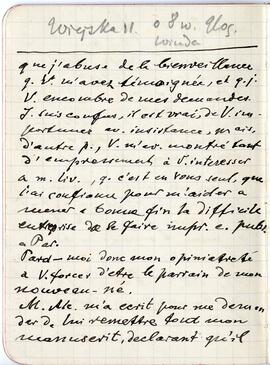 Wiejska 11. o 8 w.
winda
que j'abuse de la bienveillance
q. V. m'avez témoignée, et q. j.
V. encombre de mes demandes.
J. suis confus, il est vrai, de V. im-
portuner av. insistance, mais,
d'autre p., V. m'av. montré tant
d'empressement à V. interesser
a m. liv., q. c'est en vous seul, que
j'ai confiance pour m'aider a
mener a bonne fin la difficile
entreprise de se faire impr. e. publ.
a Par.
Pard-moi donc mon opiniatreté
a V. forcer d'etre le parrain de mon
nouveau-né.
M. Alc. m'a ecrit pour me deman
der de lui remettre tout mon
manuscrit, declarant qu'il